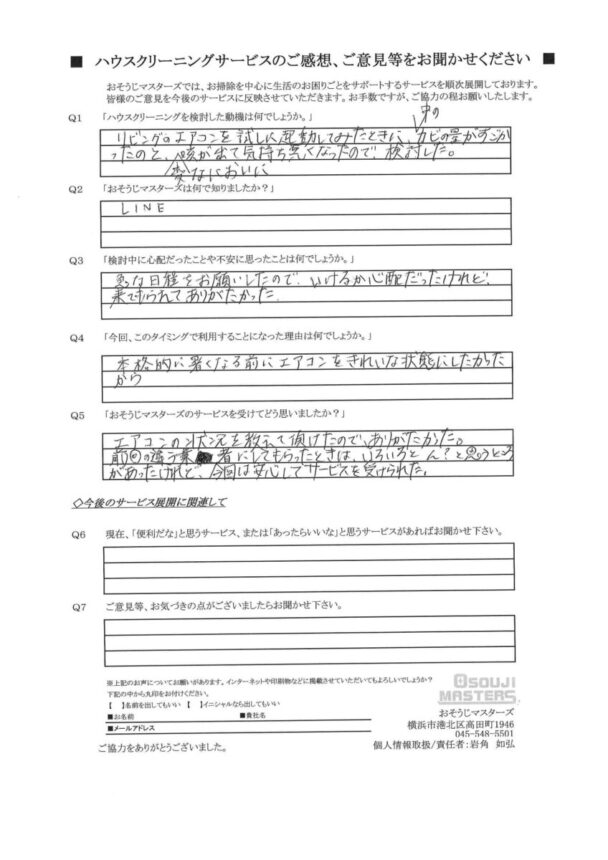 ■ ハウスクリーニングサービスのご感想、ご意見等をお聞かせください ■
おそうじマスターズでは、お掃除を中心に生活のお困りごとをサポートするサービスを順次展開しております。
皆様のご意見を今後のサービスに反映させていただきます。お手数ですが、ご協力の程お願いしたします。
Q1 「ハウスクリーニングを検討した動機は何でしょうか。」
中の
リビングのエアコンを試しに起動してみたときに、カビの量がすごか
ったのと、咳が出て気持ち悪くなったので検討した。
変なにおいに
Q2 「おそうじマスターズは何で知りましたか？」
LINE
Q3 「検討中に心配だったことや不安に思ったことは何でしょうか。」
急な日程をお願いしたので、いけるか心配だったけれど、
来て ありがたかった
Q4 「今回、このタイミングで利用することになった理由は何でしょうか。」
本格的に暑くなる前にエアコンをきれいな状態にしたかった
から
Q5 「おそうじマスターズのサービスを受けてどう思いましたか？」
エアコンの状況を教えて頂けたので、ありがたかった。
前回の違う業者にしてもらったときは、いろいろとん？と思うところ
があったけれど、今回は安心してサービスを受けられた。
◇今後のサービス展開に関連して
Q6 現在、「便利だな」と思うサービス、または「あったらいいな」と思うサービスがあればお聞かせ下さい。
Q7 ご意見等、お気づきの点がございましたらお聞かせ下さい。
※上記のお声についてお願いがあります。インターネットや印刷物などに掲載させていただいてもよろしいでしょうか？
下記の中から丸印をお付けください。
【 】名前を出してもいい 【 】イニシャルなら出してもいい
■お名前 ■貴社名
■メールアドレス
ご協力をありがとうございました。
OSOUJI
MASTERS
おそうじマスターズ
横浜市港北区高田町1946
045-548-5501
個人情報取扱/責任者:岩角 如弘